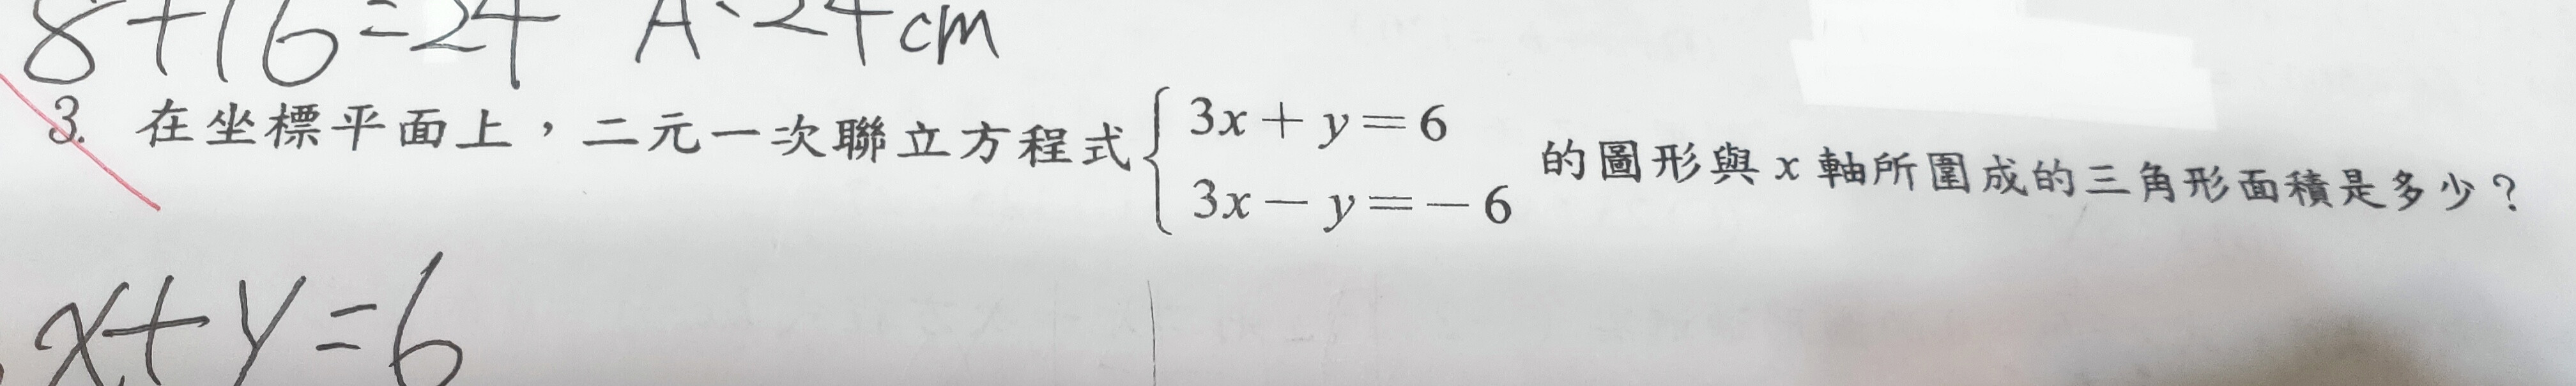 8+16=24 A:24cm
3. 在坐標平面上，二元一次聯立方程式{3x+y=6 的圖形與x軸所圍成的三角形面積是多少？
3x-y=-6
x+y=6